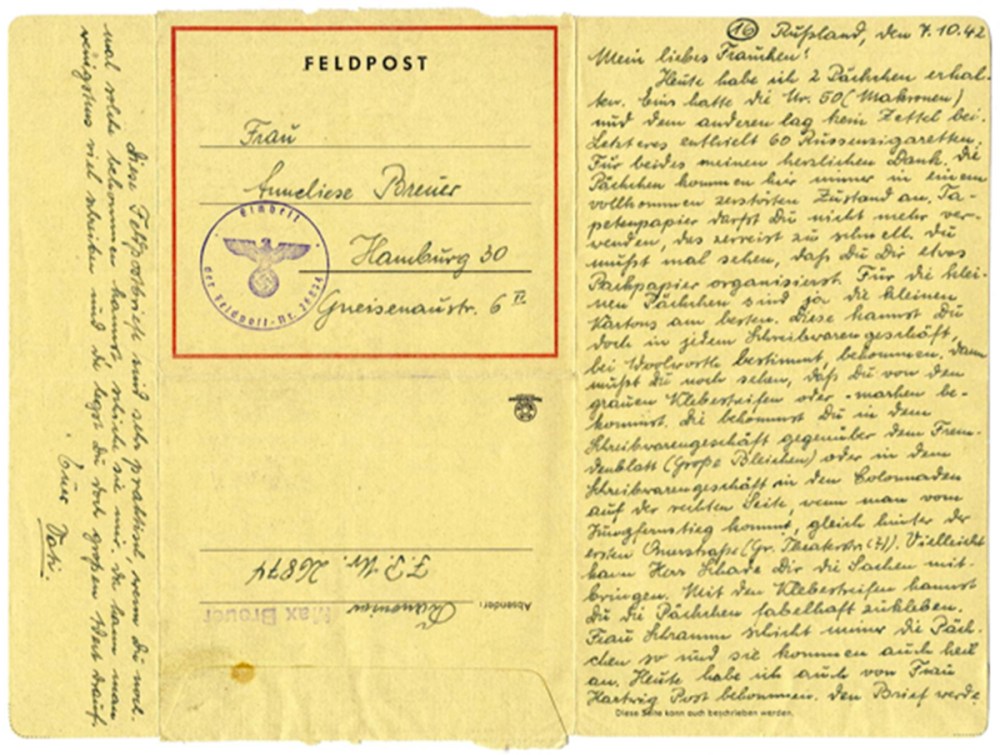 (16) Rußland, den 7.10.42
Mein liebes Frauchen!
Heute habe ich 2 Päckchen erhal-
ten. Eins hatte die Nr. 50 (Makronen)
und dem anderen lag kein Zettel bei.
Letzteres enthielt 60 Russenzigaretten.
Für beides meinen herzlichen Dank. Die
Päckchen kommen hier immer in einem
vollkommen zerstörten Zustand an. Ta-
petenpapier darfst Du nicht mehr ver-
wenden, das zerreist zu schnell. Du
mußt mal sehen, daß Du Dir etwas
Packpapier organisierst. Für die klei-
nen Päckchen sind ja die kleinen
Kartons am besten. Diese kannst Du
doch in jedem Schreibwarengeschäft,
bei Woolworth bestimmt, bekommen. Dann
mußt Du noch sehen, daß Du von den
grauen Klebestreifen oder -marken be-
kommst. Die bekommst Du in dem
Schreibwarengeschäft gegenüber dem Frem-
denblatt (Große Bleichen) oder in dem
Schreibwarengeschäft in den Colonnaden
auf der rechten Seite, wenn man vom
Jungfernstieg kommt, gleich hinter der
ersten Querstraße (Gr. Theaterstr.). Vielleicht
kann Herr Schade Dir die Sachen mit-
bringen. Mit den Klebestreifen kannst
Du die Päckchen fabelhaft zukleben.
Frau Schramm schickt immer die Päck-
chen so und sie kommen auch heil
an. Heute habe ich auch von Frau
Hartwig Post bekommen. Den Brief werde
Diese Seite kann auch beschrieben werden.
FELDPOST
Frau
Anneliese Breuer
Hamburg 30
Gneisenaustr. 6 II
Einheit
der Feldpost-Nr. 26874
Absender: Kanonier
Max Breuer
F.P. Nr. 26874
Diese Feldpostbriefe sind sehr praktisch, wenn Du noch-
mal solche bekommen kannst, schicke sie mir, da kann man
wenigstens viel schreiben und da legst Du doch großen Wert drauf.
Euer Vati.